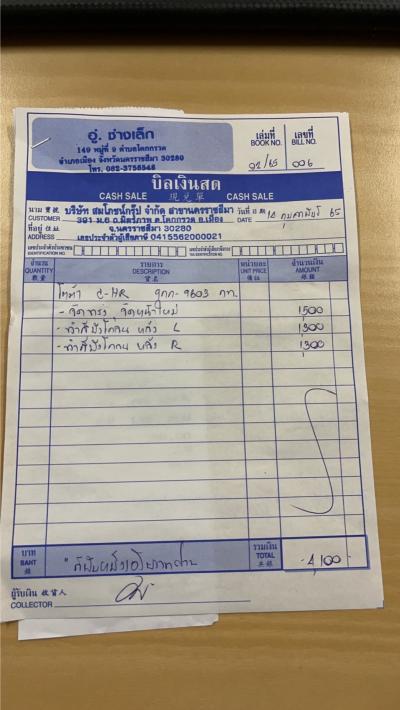 อู่. ช่างเล็ก
149 หมู่ที่ 9 ตำบลโคกกรวด
อำเภอเมือง จังหวัดนครราชสีมา 30280
โทร. 082-3756546
เล่มที่ BOOK NO. 02/65
เลขที่ BILL NO. 006
บิลเงินสด
CASH SALE 現兑單 CASH SALE
นาม寶號 CUSTOMER บริษัท สมโภชน์กรุ๊ป จำกัด สาขานครราชสีมา
391 ม.6 ถ.มิตรภาพ ต.โคกกรวด อ.เมือง
วันที่ DATE 14 กุมภาพันธ์ 65
ที่อยู่住址 ADDRESS จ.นครราชสีมา 30280
เลขประจำตัวผู้เสียภาษี 0415562000021
เลขประจำตัวประชาชน IDENTIFICATION NO.
เลขประจำตัวผู้เสียภาษีอากร TAX IDENTIFICATION NO.
จำนวน QUANTITY 數量
รายการ DESCRIPTION 貨名
หน่วยละ UNIT PRICE 價位
จำนวนเงิน AMOUNT 銀額
C-HR 9603 กท.
- 1500
- L 1300
- R 1300
บาท BAHT 銖
รวมเงิน TOTAL 共銀 4,100
ผู้รับเงิน 收貨人
COLLECTOR